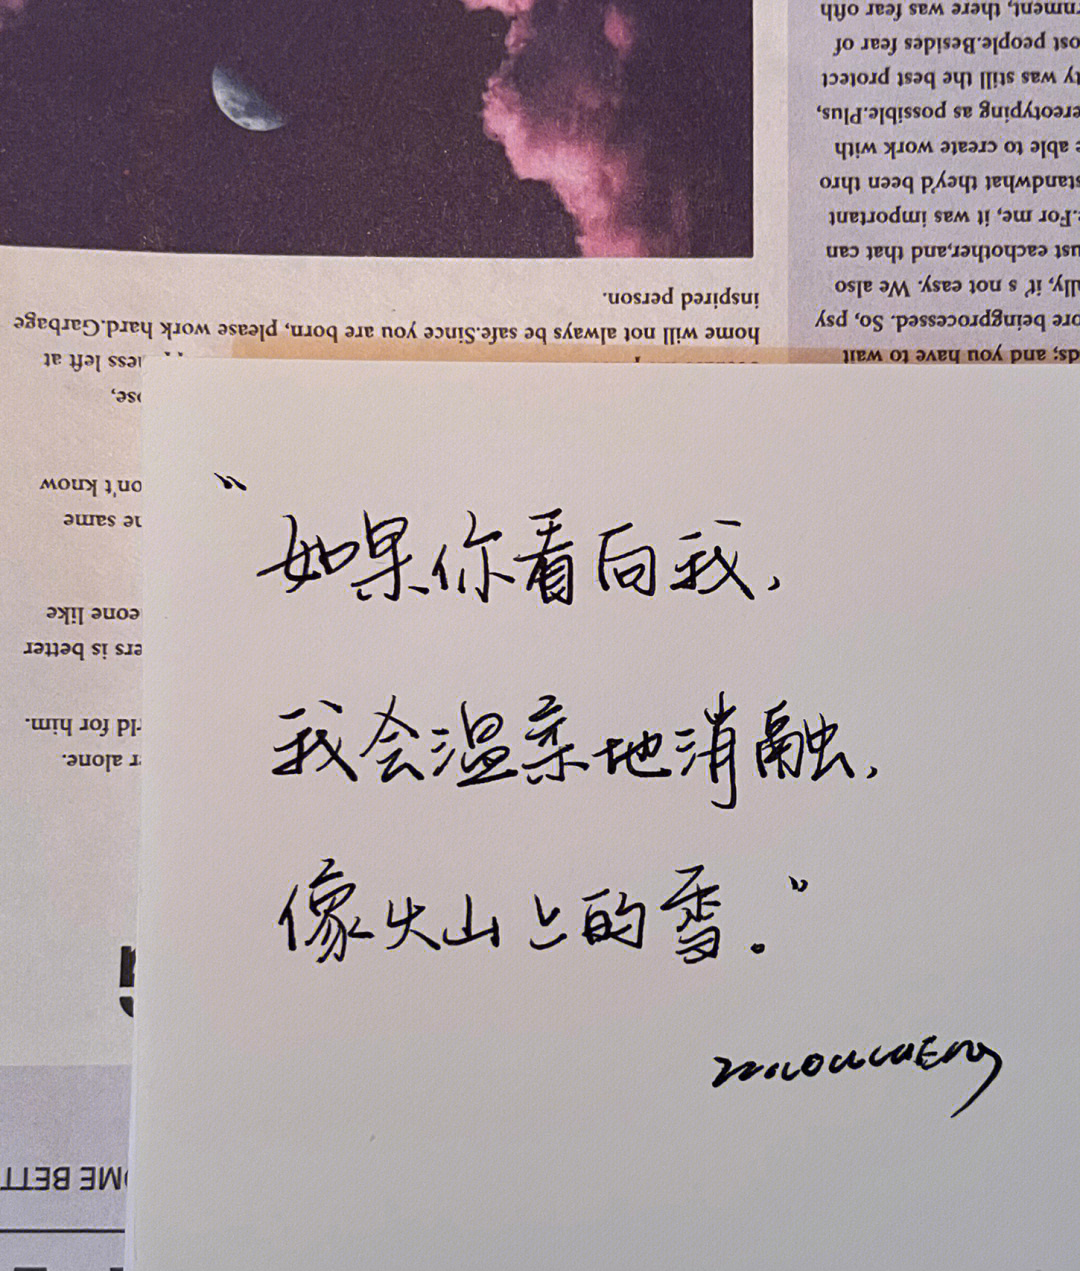 rnment, there was fear ofth
ost people.Besides fear of
ty was still the best protect
ereotyping as possible.Plus,
e able to create work with
standwhat they'd been thro
e.For me, it was important
ust eachother,and that can
lly, it's not easy. We also
ore beingprocessed. So, psy
ds; and you have to wait
inspired person.
home will not always be safe.Since you are born, please work hard.Garbage
less left at
ose,
on't know
ne same
eone like
ers is better
rld for him.
r alone.
“如果你看向我，
我会温柔地消融，
像火山上的雪。”
OME BETT